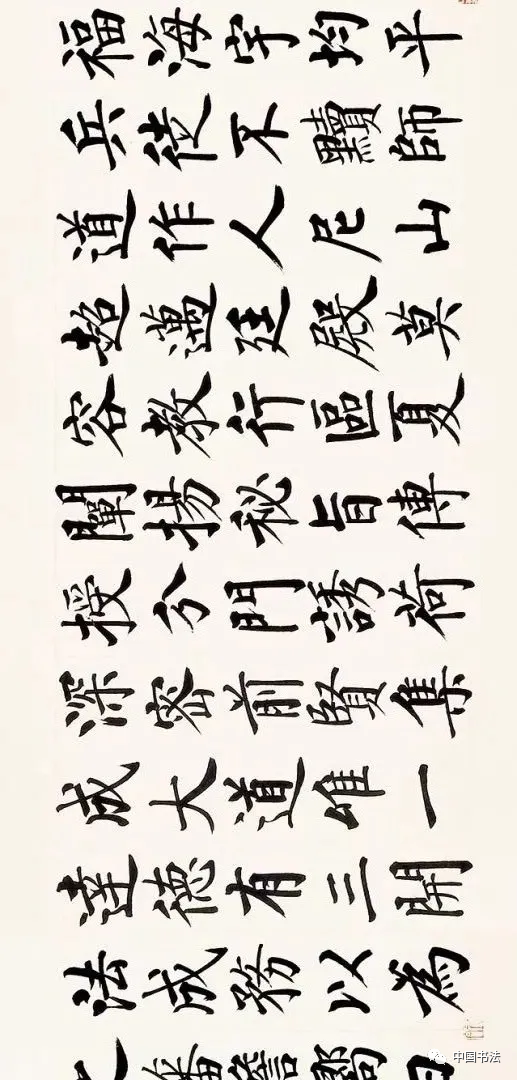 福海宇均平
兵徒不黷師
道作人尼山
超邁廷殿莫
容教行區夏
闡揚秘旨傳
授分門誘荷
深密前賢集
成大道唯一
達德有三開
法成務以為
中国书法